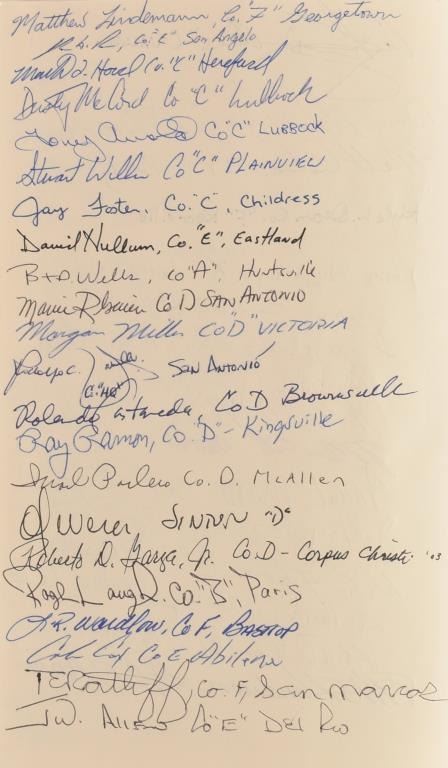 Matthew Lindemann, Co. "F" Georgetown
Co. "E" San Angelo
Co. "C" Hereford
Dusty McCord Co "C" Lubbock
Tony Arnold Co "C" LUBBOCK
Stuart Co "C" PLAINVIEW
Jay Foster, Co. "C", Childress
David Hullum, Co. "E", Eastland
Wells, Co "A", Huntsville
Co D SAN ANTONIO
Morgan Miller Co "D" VICTORIA
Co. "HQ" San Antonio
Rolando Castaneda, Co D Brownsville
Ray Ramon, Co. "D" - Kingsville
Co. D. McAllen
SINTON "D"
Roberto D. Garza, Jr. Co. D - Corpus Christi '03
Co. "B", Paris
L.R. Wardlow, Co F, BASTROP
Co E, Abilene
TE Ratliff, Co. F, San Marcos
J.W. Allen Co "E" DEL RIO